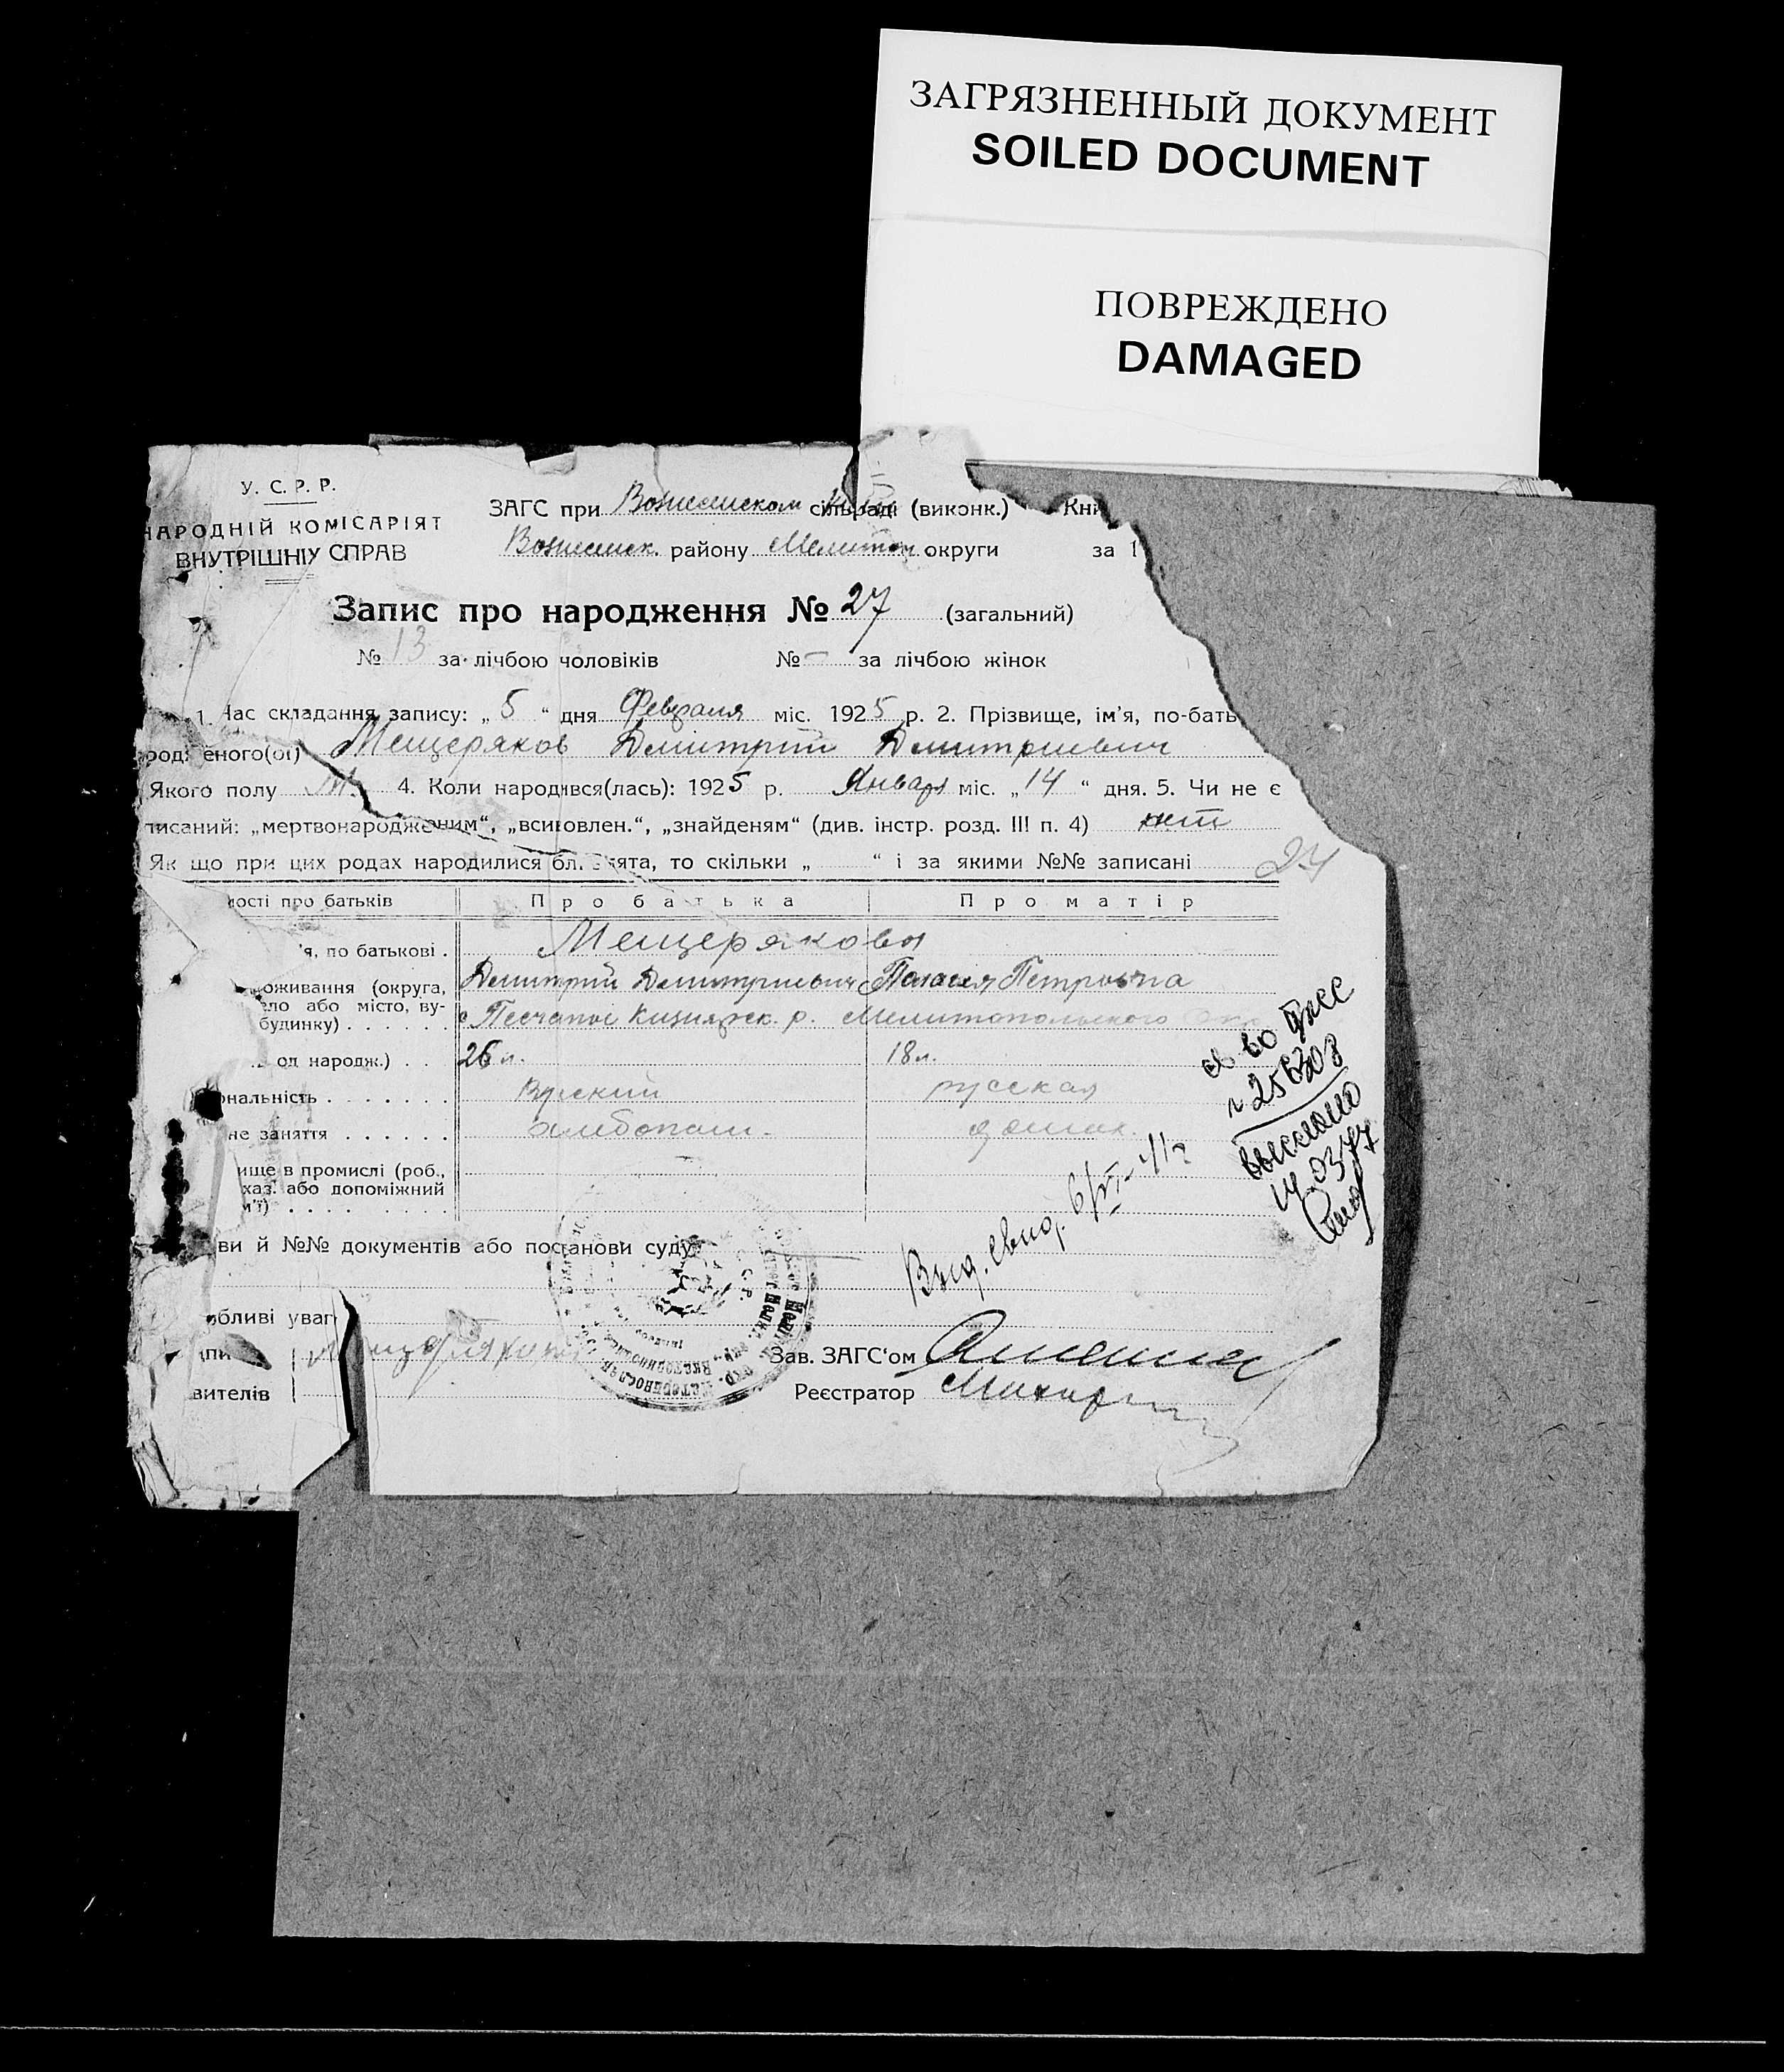 ЗАГРЯЗНЕННЫЙ ДОКУМЕНТ
SOILED DOCUMENT
ПОВРЕЖДЕНО
DAMAGED
У. С. Р. Р.
НАРОДНІЙ КОМІСАРІЯТ
ВНУТРІШНІХ СПРАВ
ЗАГС при Вознесенском сільраді (виконк.) Кни
Вознесенск. району Мелитоп. округи за 1
Запис про народження № 27 (загальний)
№ 13 за лічбою чоловіків № — за лічбою жінок
1. Час складання запису: „ 5 “ дня Февраля міс. 1925 р. 2. Прізвище, ім'я, по-бать
родж еного(ої) Мещеряков Дмитрий Дмитриевич
Якого полу М. 4. Коли народився(лась): 1925 р. Января міс. „ 14 “ дня. 5. Чи не є
писаний: „мертвонародженим“, „всиновлен.“, „знайденям“ (див. інстр. розд. III п. 4) нет
Як що при цих родах народилися бл зята, то скільки „ “ і за якими №№ записані
24
ості про батьків Про батька Про матір
'я, по батькові . Мещеряковы
Дмитрий Дмитриевич Пелагея Петровна
оживання (округа,
ло або місто, ву-
будинку) . . . . . . с Песчаное Кизиярск. р. Мелитопольского Окр
од народж.) . . 26 л. 18 л.
ональність . . . . . . . Руский русская
не заняття . . . . . . домаш.
ище в промислі (роб.,
хаз. або допоміжний
м'ї) . . . . . . . .
ви й №№ документів або постанови суду
Выд. свид. 6/VI-41 г
256308
выслано
обливі уваг
Зав. ЗАГС'ом
вителів Реєстратор